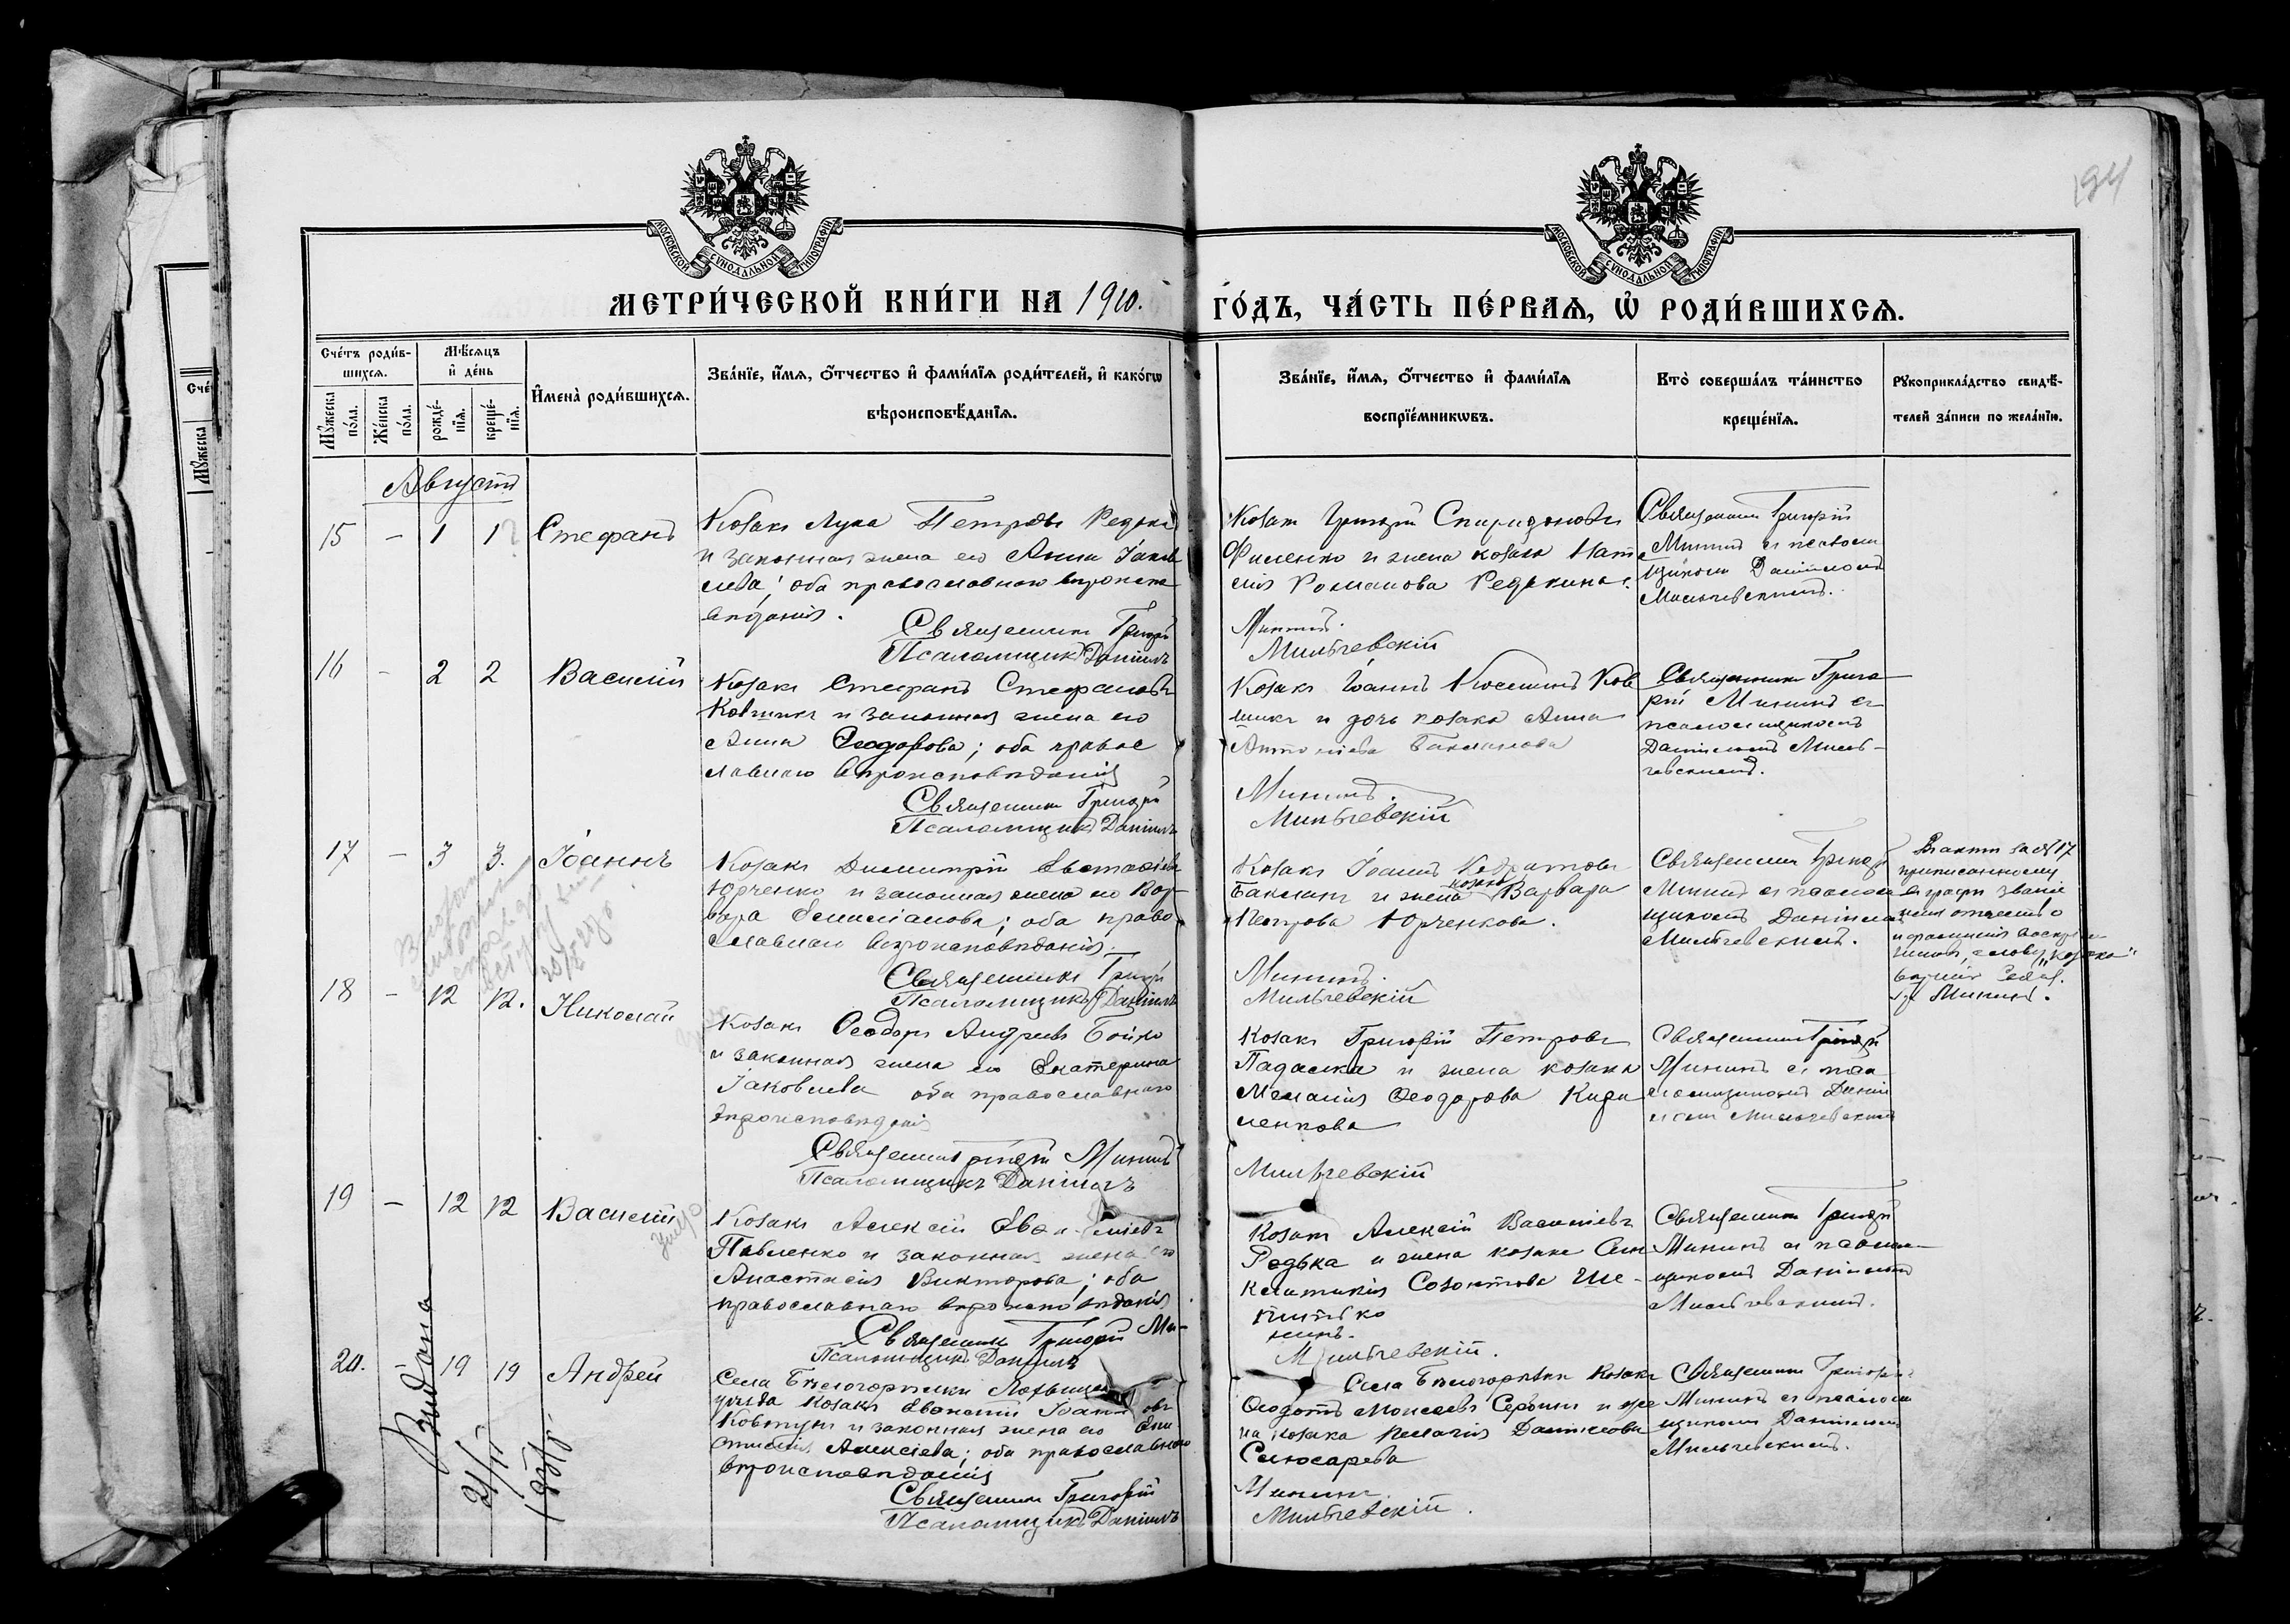 194
МОСКОВСКОЙ СУНОДАЛЬНОЙ ТИПОГРАФІИ
МОСКОВСКОЙ СУНОДАЛЬНОЙ ТИПОГРАФІИ
МЕТРИ́ЧЕСКОЙ КНИ́ГИ НА 1910.
ГО́ДЪ, ЧА́СТЬ ПЕ́РВАЯ, Ѡ РОДИ́ВШИХСЯ.
Сче́тъ роди́в-
шихся.
Мѣ́сяцъ
и де́нь
Мꙋ́жеска
по́ла.
Же́нска
по́ла.
рожде́-
нїя.
креще́-
нїя.
Имена̀ роди́вшихся.
Зва́нїе, и́мя, о́тчество и фами́лїя роди́телей, и како́гѡ
вѣроисповѣ́данїя.
Зва́нїе, и́мя, о́тчество и фами́лїя
воспрїе́мникѡвъ.
Кто̀ соверша́лъ та́инство
креще́нїя.
Рꙋкоприкла́дство свидѣ́-
телей за́писи по жела́нїю.
Августъ
15 - 1 1 Стефанъ
Козакъ Лука Петровъ Редька
и законная жена его Анна Іаков
лева; оба православнаго вѣроиспо
вѣданія.
Священникъ Григорій
Псаломщикъ Даніилъ
Козакъ Григорій Спиридоновъ
Фименко и жена козака Ната
лія Романова Редькина.
Мининъ.
Мильчевскій
Священникъ Григорій
Мининъ съ псалом
щикомъ Даніиломъ
Мильчевскимъ.
16 - 2 2 Василій
Козакъ Стефанъ Стефановъ
Ковшикъ и законная жена его
Анна Ѳеодорова; оба право
славнаго вѣроисповѣданія
Священникъ Григорій
Псаломщикъ Даніилъ
Козакъ Іоаннъ Ков
шикъ и дочь козака Анна
Антоніева Бакланова
Мининъ.
Мильчевскій
Священникъ Григо
рій Мининъ съ
псаломщикомъ
Даніиломъ Миль-
чевскимъ.
17 - 3 3. Іоаннъ
Козакъ Димитрій Евстафіевъ
Юрченко и законная жена его Вар-
вара Емиліанова; оба право
славнаго вѣроисповѣданія.
Священникъ Григорій
Псаломщикъ Даніилъ
Козакъ Іоаннъ Кодратовъ
Бакланъ и жена козака Варвара
Петрова Юрченкова.
Мининъ.
Мильчевскій
Священникъ Григорій
Мининъ съ псалом
щикомъ Даніиломъ
Мильчевскимъ.
Въ актѣ за №17
приписанному
въ графѣ званіе
имя отчество
и фамилія воспріем
никовъ, слову „козака"
вѣрить
Мининъ.
18 - 12 12. Николай
Козакъ Ѳеодоръ Андреевъ Бойко
и законная жена его Екатерина
Іаковлева оба православнаго
вѣроисповѣданія
Священникъ Григорій Мининъ
Псаломщикъ Даніилъ
Козакъ Григорій Петровъ
Падалка и жена козака
Меланія Ѳеодорова Кири
ленкова
Мильчевскій
Священникъ Григорій
Мининъ съ пса
ломщикомъ Даніи
ломъ Мильчевскимъ
19 - 12 12 Василій
умеръ
Козакъ Алексій
Павленко и законная жена его
Анастасія Викторова; оба
православнаго вѣроисповѣданія
Священникъ Григорій Ми-
Псаломщикъ Даніилъ
Козакъ Алексій Василіевъ
Редька и жена козака Син
клитикія Созонтова Ше-
питько
нинъ.
Мильчевскій.
Священникъ Григорій
Мининъ съ псалом-
щикомъ Даніиломъ
Мильчевскимъ.
20. - 19 19 Андрей
Выдана
Села Бѣлогорѣлки Лохвицкаго
уѣзда козакъ Іоанновъ
Ковтунъ и законная жена его
Алексіева; оба православнаго
вѣроисповѣданія
Священникъ Григорій
Псаломщикъ Даніилъ
Села Бѣлогорѣлки козакъ
Ѳеодотъ Моисеевъ Сербинъ и же
на козака Пелагія Даніилова
Слюсарева
Мининъ
Мильчевскій.
Священникъ Григорій
Мининъ съ псалом
щикомъ Даніиломъ
Мильчевскимъ.